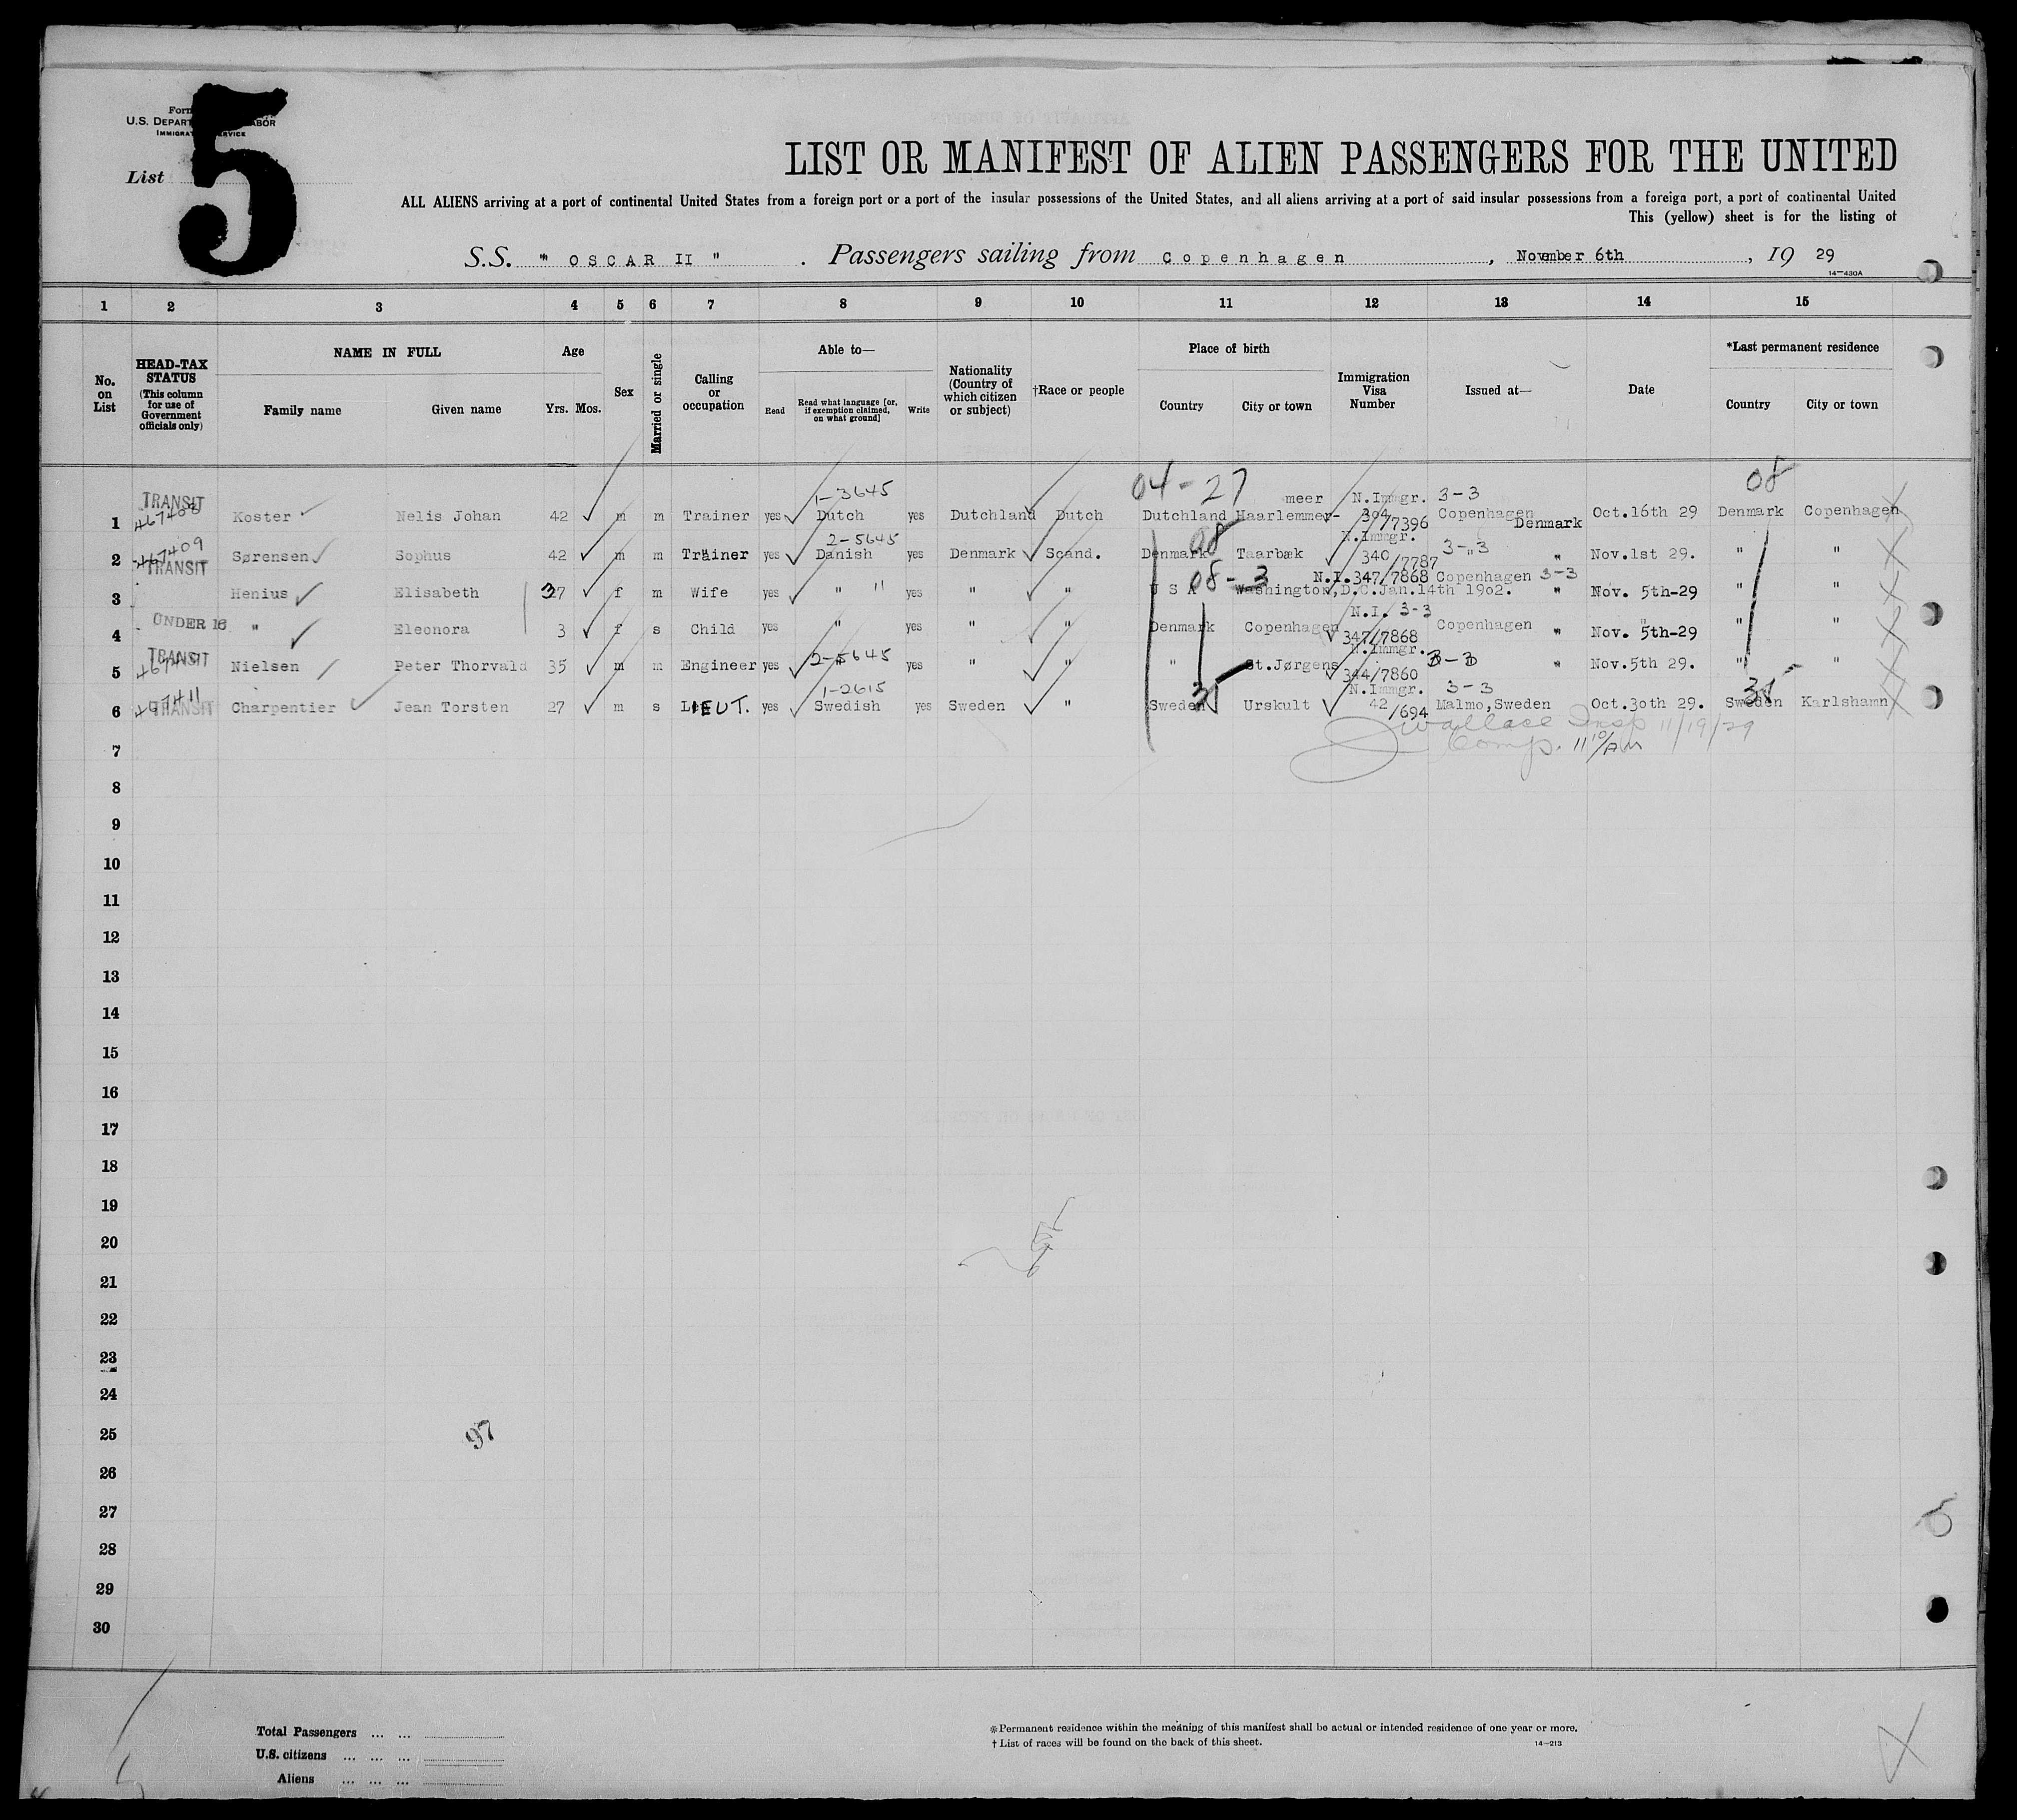 5
Form
U.S. DEPART ABOR
IMMIGRA ERVICE
List
LIST OR MANIFEST OF ALIEN PASSENGERS FOR THE UNITED
ALL ALIENS arriving at a port of continental United States from a foreign port or a port of the insular possessions of the United States, and all aliens arriving at a port of said insular possessions from a foreign port, a port of continental United
This (yellow) sheet is for the listing of
S.S. " OSCAR II " . Passengers sailing from Copenhagen , November 6th , 19 29
14—430A
1 2 3 4 5 6 7 8 9 10 11 12 13 14 15
No. on List
HEAD-TAX STATUS
(This column for use of Government officials only)
NAME IN FULL
Family name Given name
Age
Yrs. Mos.
Sex
Married or single
Calling or occupation
Able to—
Read Read what language [or, if exemption claimed, on what ground] Write
Nationality (Country of which citizen or subject)
†Race or people
Place of birth
Country City or town
Immigration Visa Number
Issued at—
Date
*Last permanent residence
Country City or town
04-27 08
TRANSIT 1-3645 meer N.Immgr. 3-3
1 467408 Koster Nelis Johan 42 m m Trainer yes Dutch yes Dutchland Dutch Dutchland Haarlemmer- 304/7396 Copenhagen Denmark Oct.16th 29 Denmark Copenhagen
467409 2-5645 08 N.Immgr.
2 TRANSIT Sørensen Sophus 42 m m Trainer yes Danish yes Denmark Scand. Denmark Taarbæk 340/7787 3-3 " " Nov.1st 29. " "
08-3 N.I.347/7868 Copenhagen 3-3
3 Henius Elisabeth 37 f m Wife yes " " yes " " U S A Washington,D.C.Jan.14th 1902. " Nov. 5th-29 " "
UNDER 16 N.I. 3-3
4 " Eleonora 3 f s Child yes " yes " " Denmark Copenhagen 347/7868 Copenhagen " Nov. 5th-29 " "
TRANSIT 2-5645 N.Immgr.
5 Nielsen Peter Thorvald 35 m m Engineer yes " yes " " " St.Jørgens 344/7860 3-3 " Nov.5th 29. " "
1-2615 35 N.Immgr. 3-3 35
6 TRANSIT Charpentier Jean Torsten 27 m s LIEUT. yes Swedish yes Sweden " Sweden Urskult 42/694 Malmo,Sweden Oct.30th 29. Sweden Karlshamn
Wallace Insp 11/19/29
Comp. 11 10/AM
7
8
9
10
11
12
13
14
15
16
17
18
19
20
21
22
23
24
25
97
26
27
28
29
30
Total Passengers ... ...
U.S. citizens ... ... ...
Aliens ... ... ...
*Permanent residence within the meaning of this manifest shall be actual or intended residence of one year or more.
† List of races will be found on the back of this sheet. 14—213